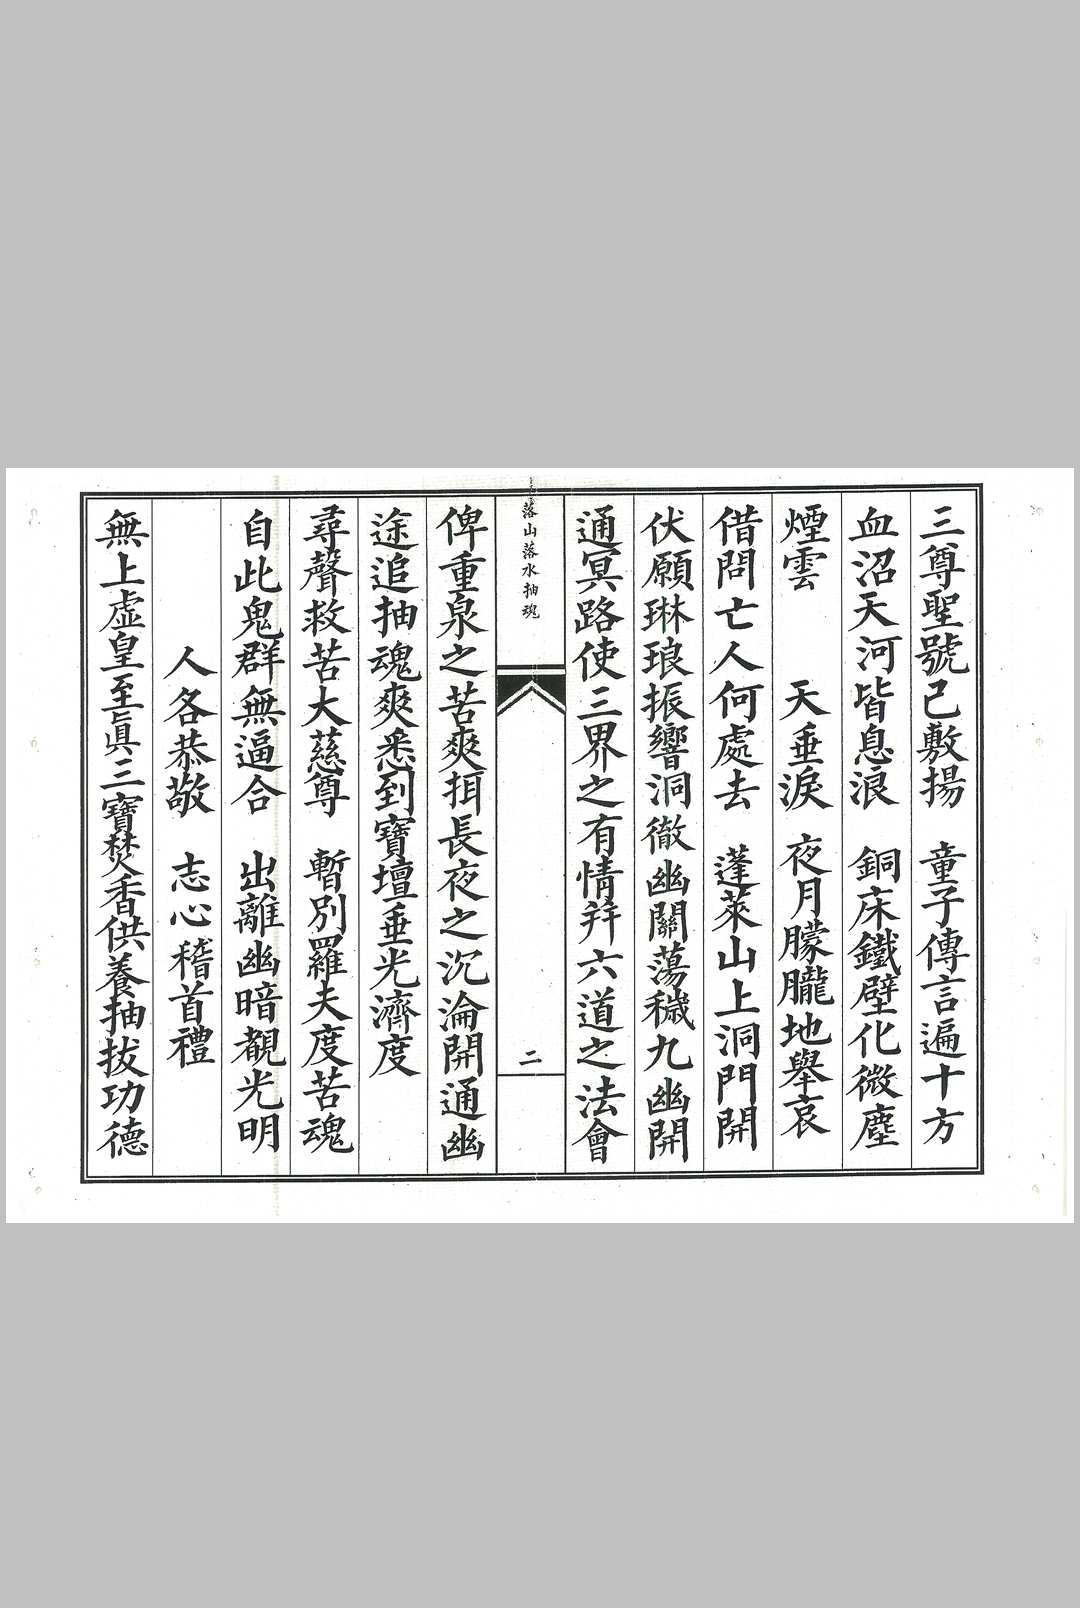 三尊聖號已敷揚　童子傳言遍十方
血沼天河皆息浪　銅床鐵壁化微塵
煙雲　天垂淚　夜月朦朧地舉哀
借問亡人何處去　蓬萊山上洞門開
伏願琳琅振響洞徹幽關蕩穢九幽開
通冥路使三界之有情并六道之法會
落山落水抽魂
二
俾重泉之苦爽抇長夜之沉淪開通幽
途追抽魂爽悉到寶壇垂光濟度
尋聲救苦大慈尊　暫別羅夫度苦魂
自此鬼群無逼合　出離幽暗覩光明
人各恭敬　志心稽首禮
無上虛皇至眞三寶焚香供養抽拔功德